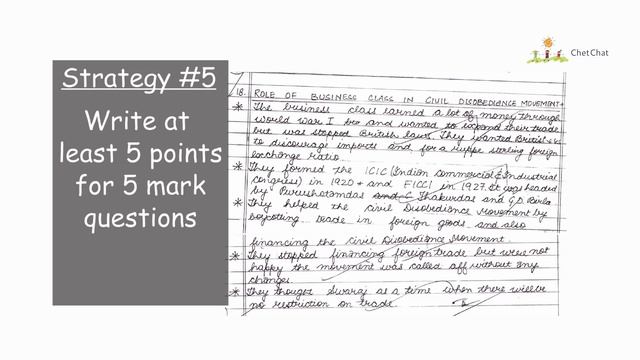 ChetChat
Strategy #5
Write at
least 5 points
for 5 mark
questions
18. ROLE OF BUSINESS CLASS IN CIVIL DISOBEDIENCE MOVEMENT
* The business class earned a lot of money through
world war I and wanted to expand their trade
but was stopped British laws. They wanted British
to discourage imports and for a rupee sterling foreign
exchange ratio.
* They formed the ICIC (Indian Commercial & Industrial
Congress) in 1920 and FICCI in 1927. It was headed
by Purushotamdas and C Thakurdas and G.D. Birla
* They helped the Civil Disobedience Movement by
boycotting trade in foreign goods and also
financing the Civil Disobedience Movement.
* They stopped financing foreign trade but were not
happy the movement was called off without any
changes.
* They thought Swaraj as a time when there will be
no restriction on trade.